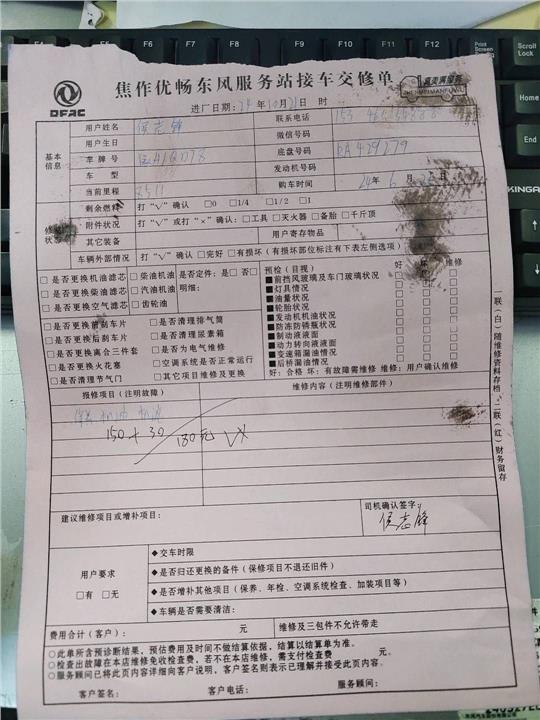 焦作优畅东风服务站接车交修单
DFAC
进厂日期：24年10月21日 时
用户姓名 侯志锋 联系电话
用户生日 微信号码
基本信息
车牌号 底盘号码 RA429279
车 型 发动机号码
当前里程 购车时间 24年6月 日
剩余燃料 打“√”确认 □0 □1/4 □1/2 □1
附件状况 打“√”或打“×”确认：□工具 □灭火器 □备胎 □千斤顶
其它装备 用户寄存物品
车辆外部情况 打“√”确认 □完好 □有损坏（有损坏部位标注有下表左侧选项）
□是否更换机油滤芯 □柴油机油 □是否定件：是 □否□
□是否更换柴油滤芯 □汽油机油 明细：
□是否更换空气滤芯 □齿轮油
□是否更换前刹车片 □是否清理排气筒
□是否更换后刹车片 □是否清理尿素箱
□是否更换离合三件套 □是否为电气维修
□是否更换火花塞 □空调系统是否正常运行
□是否清理节气门 □其它项目维修及更换
预检（目视） 好 坏 维修
■前挡风玻璃及车门玻璃状况 □ □ □
■灯具情况 □ □ □
■油量状况 □ □ □
■轮胎状况 □ □ □
■发动机机油状况 □ □ □
■防冻防锈瓶状况 □ □ □
■制动液液面 □ □ □
■动力转向液液面 □ □ □
■变速箱漏油情况 □ □ □
■后桥漏油情况 □ □ □
好：合格 坏：有故障需维修 维修：用户确认维修
报修项目（注明故障） 维修内容（注明维修部件）
150+30 180元 √×
建议维修项目或增补项目：
司机确认签字：
侯志锋
用户要求
□有 □无
◆交车时限
◆是否归还更换的备件（保修项目不退还旧件）
◆是否增补其他项目（保养、年检、空调系统检查、加装项目等）
◆车辆是否需要清洁：
费用合计（客户）： 元 维修及三包件不允许带走
○此单所含预诊断结果，预估费用及时间不做结算依据，结算以结算单为准。
○检查出故障在本店维修免收检查费，若不在本店维修，需支付检查费 元。
○服务顾问已将此页内容详细向客户说明，客户签名则表示已理解并接受此页内容。
客户签名： 客户电话： 服务顾问：
一联（白）随维修资料存档，二联（红）财务留存
F4 F5 F6 F7 F8 F9 F10 F11 F12
Print Screen
Scroll Lock
Home
End